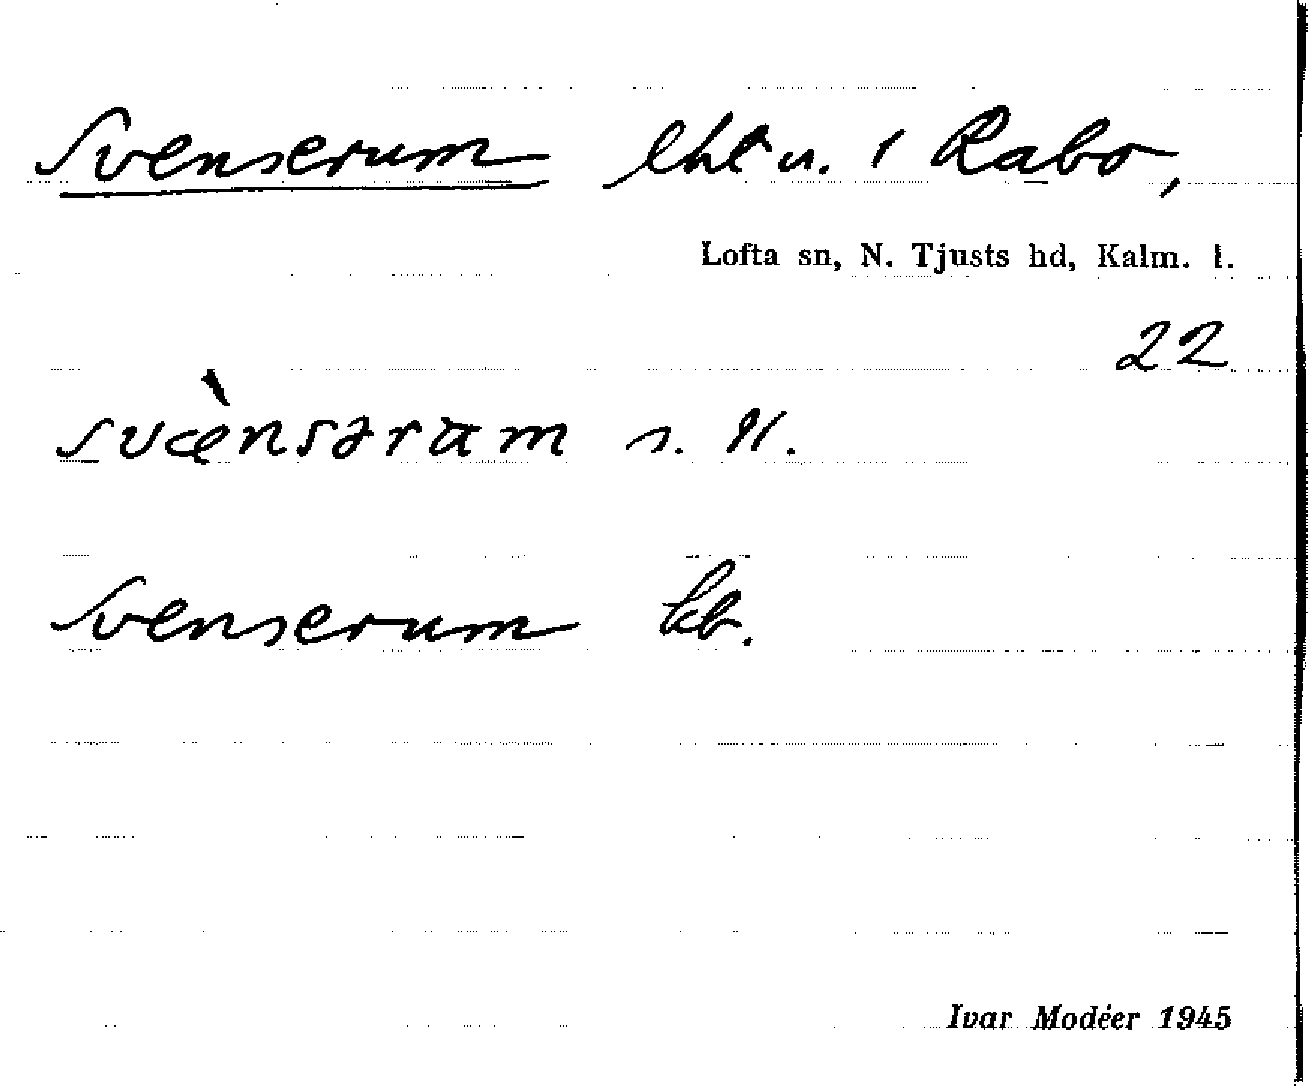 Svenserum lht u. 1 Rabo,
Lofta sn, N. Tjusts hd, Kalm. l.
22
svæ̀nsəram s. st.
Svenserum kb.
Ivar Modéer 1945